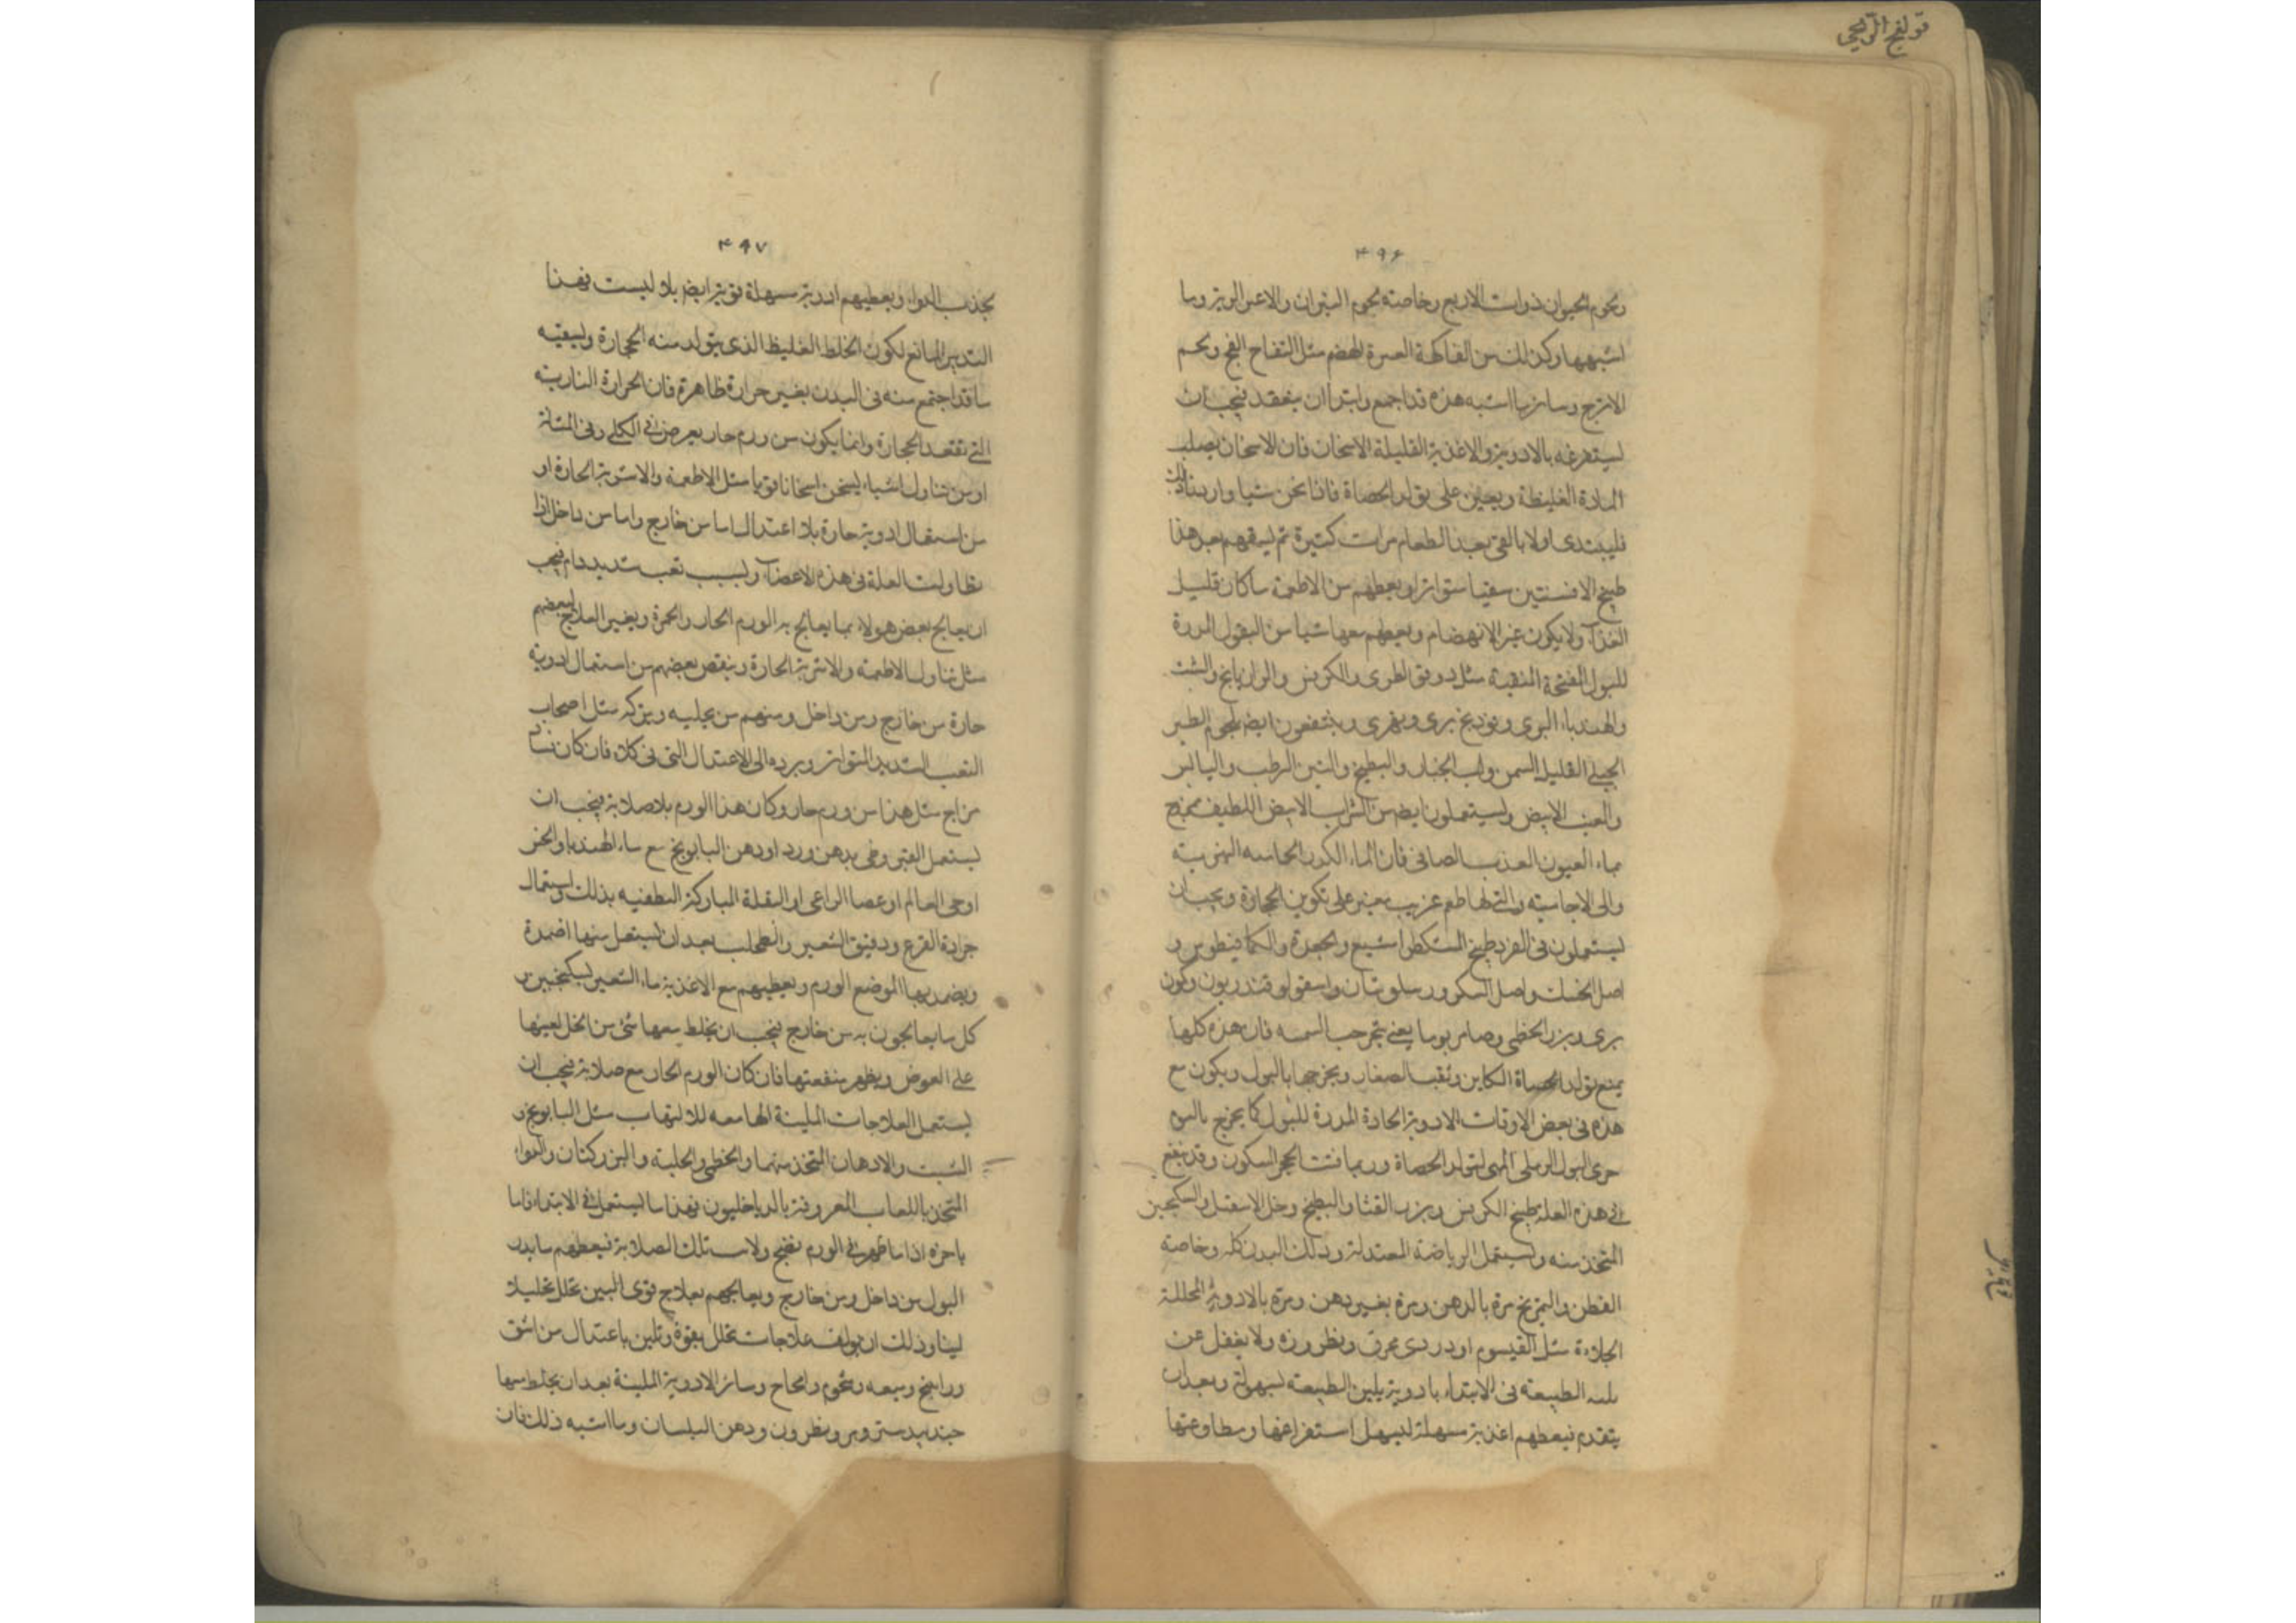 قولنج الريحي
۴۹۶
ولحوم الحيوان ذوات الاربع وخاصته لحوم التيران والاعنز البرية وما
اشبهها وكذلك من الفاكهة العسرة الهضم مثل التفاح الفج ولحم
الاترج وسائر ما اشبه هذه قد اجمع وابتدا ان ينعقد فيجب ان
يستفرغه بالادوية والاغذية القليلة الاسخان فان الاسخان يصلب
المادة الغليظة ويعين على تولد الحصاة فاذا نحن شيا واردنا ذلك
فليبتدى اولا بالقى بعد الطعام مرات كثيرة ثم ليسقهم بعد هذا
طبيخ الافسنتين سقيا متواترا ويعطهم من الاطعمة ما كان قليل
الغذآ ولا يكون عسر الانهضام ويعطهم معها شيا من البقول المدرة
للبول المفتحة المنقية مثل دوقو الطرى والكرفس والرازيانج والشبت
والهندباء البرى وفوديخ برى ونهرى وينتفعون ايضا بلحوم الطير
الجبلى القليل السمن ولب الخيار والبطيخ والتين الرطب واليابس
والعنب الابيض ويستعملون ايضا من الشراب الابيض اللطيف ممزج
بماء العيون العذب الصافى فان الماء الكدر
والى الاجامية والتى لها طعم غريب يعين على تكوين الحجارة ويجب ان
يستعملون فى
اصل الخسك واصل السكر
برى وبزر الخطمى يعنى فان هذه كلها
يمنع تولد الحصاة الكاين وتفتت الصغار ويخرجها بالبول ويكون مع
هذه فى بعض الاوقات الادوية الحادة المدرة للبول كما يخرج بالبول
جرى البول الرملى المهى لتولد الحصاة وربما فتت الحجر السكون وقد ينفع
فى هذه العلة طبيخ الكرفس وبزر القثا والبطيخ وخل الاسقيل والسكنجبين
المتخذ منه ويستعمل الرياضة المعتدلة ودلك البدن كله وخاصته
القطن والتمريخ مرة بالدهن ومرة بغير دهن ومرة بالادوية المحللة
الجلاءة مثل القيسوم او دردى محرق ونطرون ولا يغفل عن
الطبيعة فى الابتداء بادوية يلين الطبيعة بسهولة وبعد ان
يتقدم فيعطهم اغذية مسهلة ليسهل استفراغها ومطاوعتها
۴۹۷
بجذب الدواء ويعطيهم ادوية مسهلة قوية ايضا بلا ليست فهذا
التدبير المانع لكون الخلط الغليظ الذى يتولد منه الحجارة ولبقية
ما قد اجتمع منه فى البدن بغير حرارة ظاهرة فان الحرارة النارية
التى تعقد الحجارة وانما يكون من ورم حار يعرض فى الكلى وفى المثانة
او من تناول اشياء يسخن اسخانا قويا مثل الاطعمة والاشربة الحارة او
من استعمال ادوية حارة بلا اعتدال اما من خارج واما من داخل اذا
تطاولت العلة فى هذه الاعضآ ولسبب تعب شديد دام فيجب
ان يعالج بعض هولاء بما يعالج به الورم الحار والحمرة وبغير العلاج لبعضهم
مثل تناول الاطعمة والاشربة الحارة وينقص بعضهم من استعمال ادوية
حارة من خارج ومن داخل ومنهم من يجلبه ويتركه مثل اصحاب
التعب الشديد المتواتر ويرده الى الاعتدال التى فى كلاه فان كان فساد
مزاج مثل هذا من ورم حار وكان هذا الورم بلا صلابة فيجب ان
يستعمل القيروطى بدهن ورد او دهن البابونج مع ماء الهندبا والخس
او حى العالم او عصا الراعى او البقلة المباركة المطفيه بذلك واستعمال
جرادة القرع ودقيق الشعير والطحلب بعد ان يستعمل منها اضمدة
ويضمد بها الموضع الورم ويعطيهم مع الاغذية ماء الشعير بسكنجبين و
كل ما يعالجون به من خارج فيجب ان يخلط معها شى من الخل ليعينها
على الغوص ويظهر منفعتها فان كان الورم الحار مع صلابة فيجب ان
يستعمل العلاجات الملينة القامعه للالتهاب مثل البابونج و
الشبت والادهان المتخذ منهما والخطمى والحلبة والبزركتان والدواء
المتخذ باللعاب المعروفة بالدياخليون فهذا ما يستعمل فى الابتداء فاما
باخره اذا ما ظهر فى الورم نضج ولانت تلك الصلابة فيعطهم ما يدر
البول من داخل ومن خارج ويعالجهم بعلاج قوى اليبس يحلل تحليلا
لينا وذلك ان يولف علاجات تحلل بقوة وتلين باعتدال من اشق
وراتينج وميعه وشحوم وامخاخ وسائر الادوية الملينة بعد ان يخلط معها
جندبيدستر ومر ونطرون ودهن البلسان وما اشبه ذلك فان